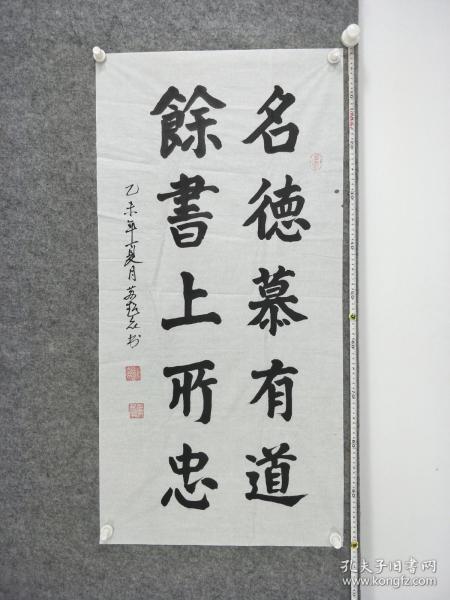 名德慕有道
餘書上所忠
乙未年夏月
书
孔夫子旧书网
www.kongfz.com